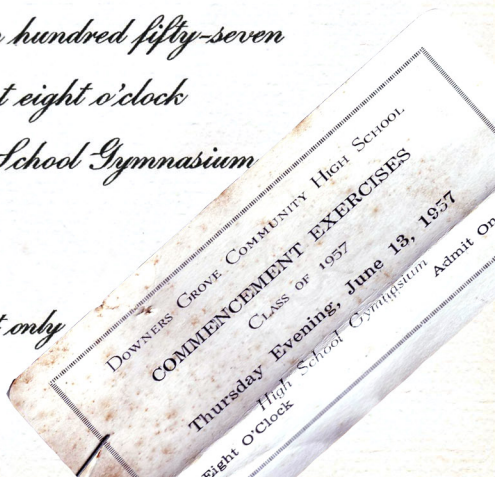 hundred fifty-seven
t eight o'clock
School Gymnasium
t only
DOWNERS GROVE COMMUNITY HIGH SCHOOL
COMMENCEMENT EXERCISES
CLASS OF 1957
Thursday Evening, June 13, 1957
High School Gymnasium
Eight O'Clock
Admit On